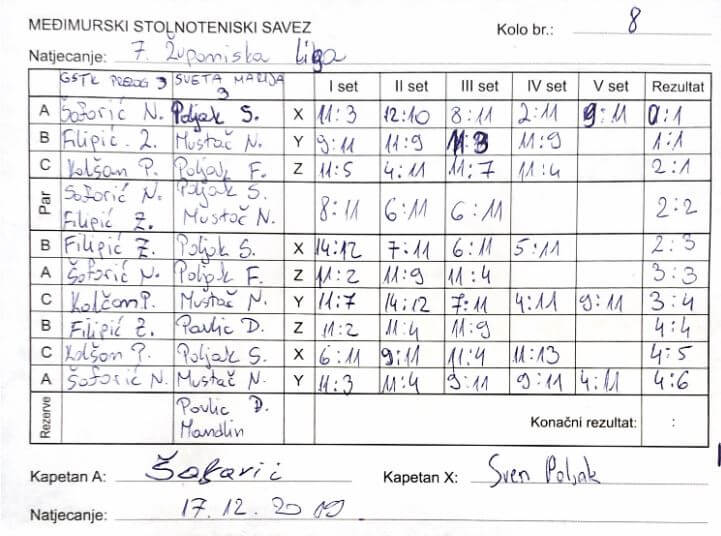 MEĐIMURSKI STOLNOTENISKI SAVEZ Kolo br.: 8
Natjecanje: 7. Županijska liga
GSTK PRELOG 9 SVETA MARIJA 9 I set II set III set IV set V set Rezultat
A Šoforić N. Poljak S. X 11:3 12:10 8:11 2:11 9:11 0:1
B Filipić Z. Mustač N. Y 9:11 11:9 11:3 11:9 1:1
C Kolšan P. Poljak F. Z 11:5 4:11 11:7 11:4 2:1
Par Šoforić N. Filipić Z. Poljak S. Mustač N. 8:11 6:11 6:11 2:2
B Filipić Z. Poljak S. X 14:12 7:11 6:11 5:11 2:3
A Šoforić N. Poljak F. Z 11:2 11:9 11:4 3:3
C Kolčan P. Mustač N. Y 11:7 14:12 7:11 4:11 9:11 3:4
B Filipić Z. Pavlic D. Z 11:2 11:4 11:9 4:4
C Kolšan P. Poljak S. X 6:11 9:11 11:4 11:13 4:5
A Šoforić N. Mustač N. Y 11:3 11:4 9:11 9:11 4:11 4:6
Rezerve Pavlic D. Mandlin Konačni rezultat: :
Kapetan A: Šafarić Kapetan X: Sven Poljak
Natjecanje: 17.12.2019